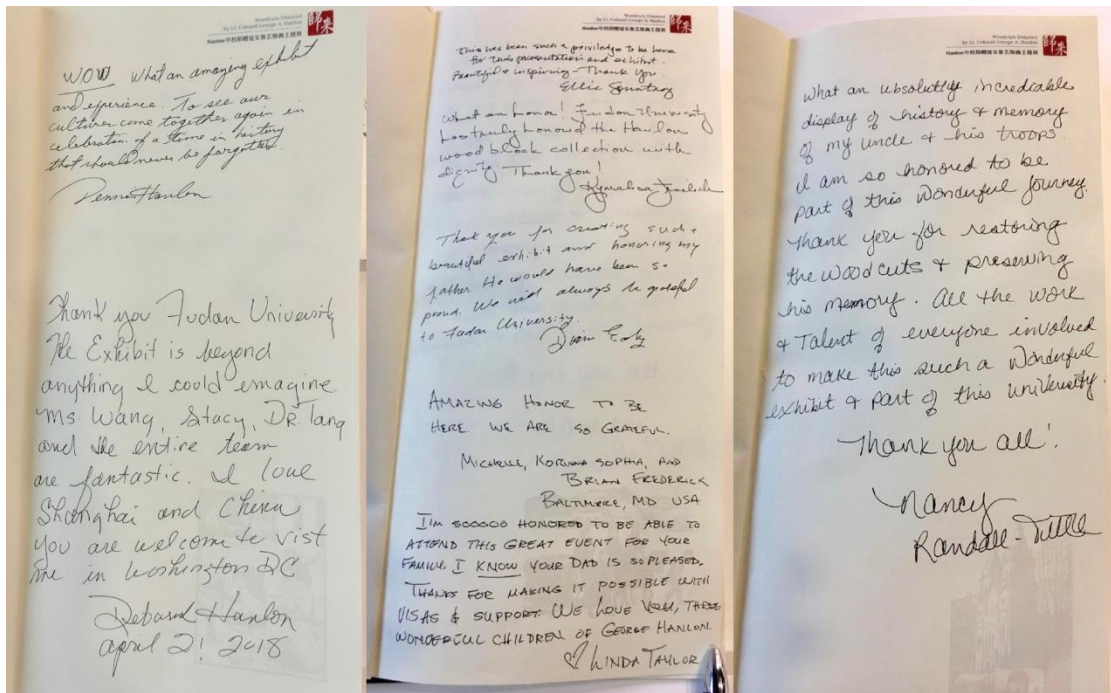 Woodcuts Donated
by Lt. Colonel George A. Hanlon
Hanlon中校捐赠延安鲁艺版画主题展
歸来
WOW What an amazing exhibit
and experience. To see our
cultures come together again in
celebration of a time in history
that should never be forgotten.
Hanlon
Thank you Fudan University
The Exhibit is beyond
anything I could emagine
Ms. Wang, Stacy, DR. Tang
and the entire team
are fantastic. I love
Shanghai and China
you are welcome to vist
me in Washington DC
Deborah Hanlon
april 2! 2018
Woodcuts Donated
by Lt. Colonel George A. Hanlon
Hanlon中校捐赠延安鲁艺版画主题展
歸来
This has been such a priviledge to be here
for this presentation and exhibit.
Beautiful & inspiring - Thank you.
Ellie Sonntag
What an honor! Fudan University
has truly honored the Hanlon
wood block collection with
dignity. Thank you!
Thank you for creating such a
beautiful exhibit and honoring my
father. He would have been so
proud. We will always be grateful
to Fudan University.
AMAZING HONOR TO BE
HERE. WE ARE SO GRATEFUL.
MICHELLE, KORINNA SOPHIA, AND
BRIAN FREDERICK
BALTIMORE, MD USA
I'M SOOOOO HONORED TO BE ABLE TO
ATTEND THIS GREAT EVENT FOR YOUR
FAMILY. I KNOW YOUR DAD IS SO PLEASED.
THANKS FOR MAKING IT POSSIBLE WITH
VISAS & SUPPORT. WE LOVE YOU, THREE
WONDERFUL CHILDREN OF GEORGE HANLON.
♡ LINDA TAYLOR
Woodcuts Donated
by Lt. Colonel George A. Hanlon
Hanlon中校捐赠延安鲁艺版画主题展
歸来
What an absolutly incredicable
display of history & memory
of my uncle & his troops.
I am so honored to be
part of this wonderful journey.
Thank you for restoring
the woodcuts & preserving
his memory. All the work
& Talent of everyone involved
to make this such a wonderful
exhibit & part of this university.
Thank you all!
Nancy
Randall-Tuttle